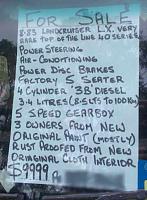 FOR SALE
8-83 LANDCRUISER L.X. VERY
RARE TOP OF THE LINE 40 SERIES
POWER STEERING
AIR-CONDITIONING
POWER DISC BRAKES
FACTORY 5 SEATER
4 CYLINDER '3B' DIESEL
3.4 LITRES (8.5 LTS TO 100KM)
5 SPEED GEARBOX
3 OWNERS FROM NEW
ORIGINAL PAINT (MOSTLY)
RUST PROOFED FROM NEW
ORIGINAL CLOTH INTERIOR
$9999